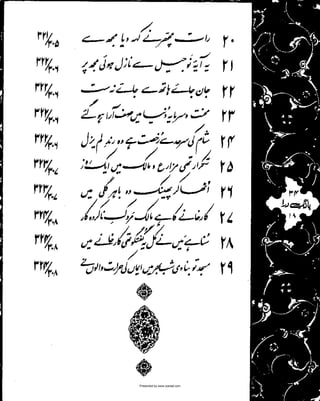 ۲۰ رات مچھر نے کہہ دیا مجھ سے
۲۱ یہ آیۂ نو جیل سے نازل ہوئی مجھ پر
۲۲ جان جائے ہاتھ سے جائے نہ ست
۲۳ محنت و سرمایہ دنیا میں صف آرا ہو گئے
۲۴ شام کی سرحد سے رخصت ہے وہ رند لم یزل
۲۵ تکرار تھی مزارع و مالک میں ایک روز
۲۶ اٹھا کر پھینک دو باہر گلی میں
۲۷ کارخانے کا ہے مالک مردک ناکردہ کار
۲۸ سنا ہے میں نے کل یہ گفتگو تھی کارخانے میں
۲۹ مسجد تو بنا دی شب بھر میں ایماں کی حرارت والوں نے
بانگ درا
Presented by www.ziaraat.com